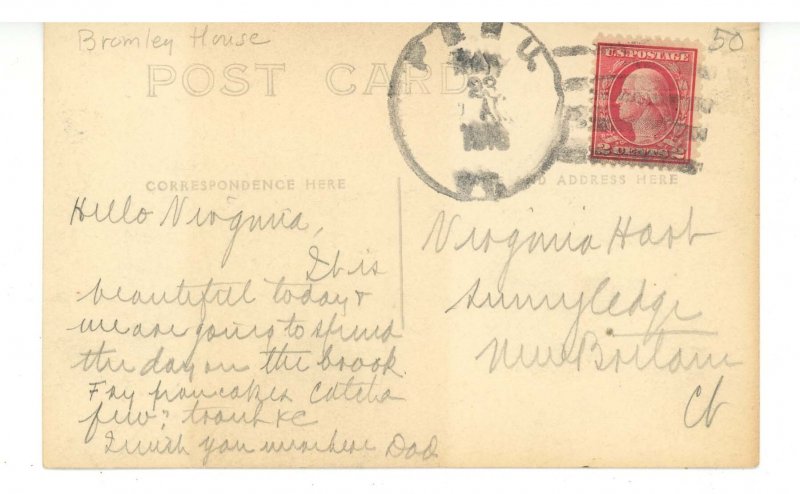 Bromley House
50
POST CARD
PERU
23
VT.
U.S. POSTAGE
2 CENTS 2
CORRESPONDENCE HERE
AND ADDRESS HERE
Hello Virginia,
It is
beautiful today &
we are going to spend
the day on the brook.
Fry pancakes catch a
few trout &c
I wish you were here Dad
Virginia Hart
Sunnyledge
New Britain
Ct